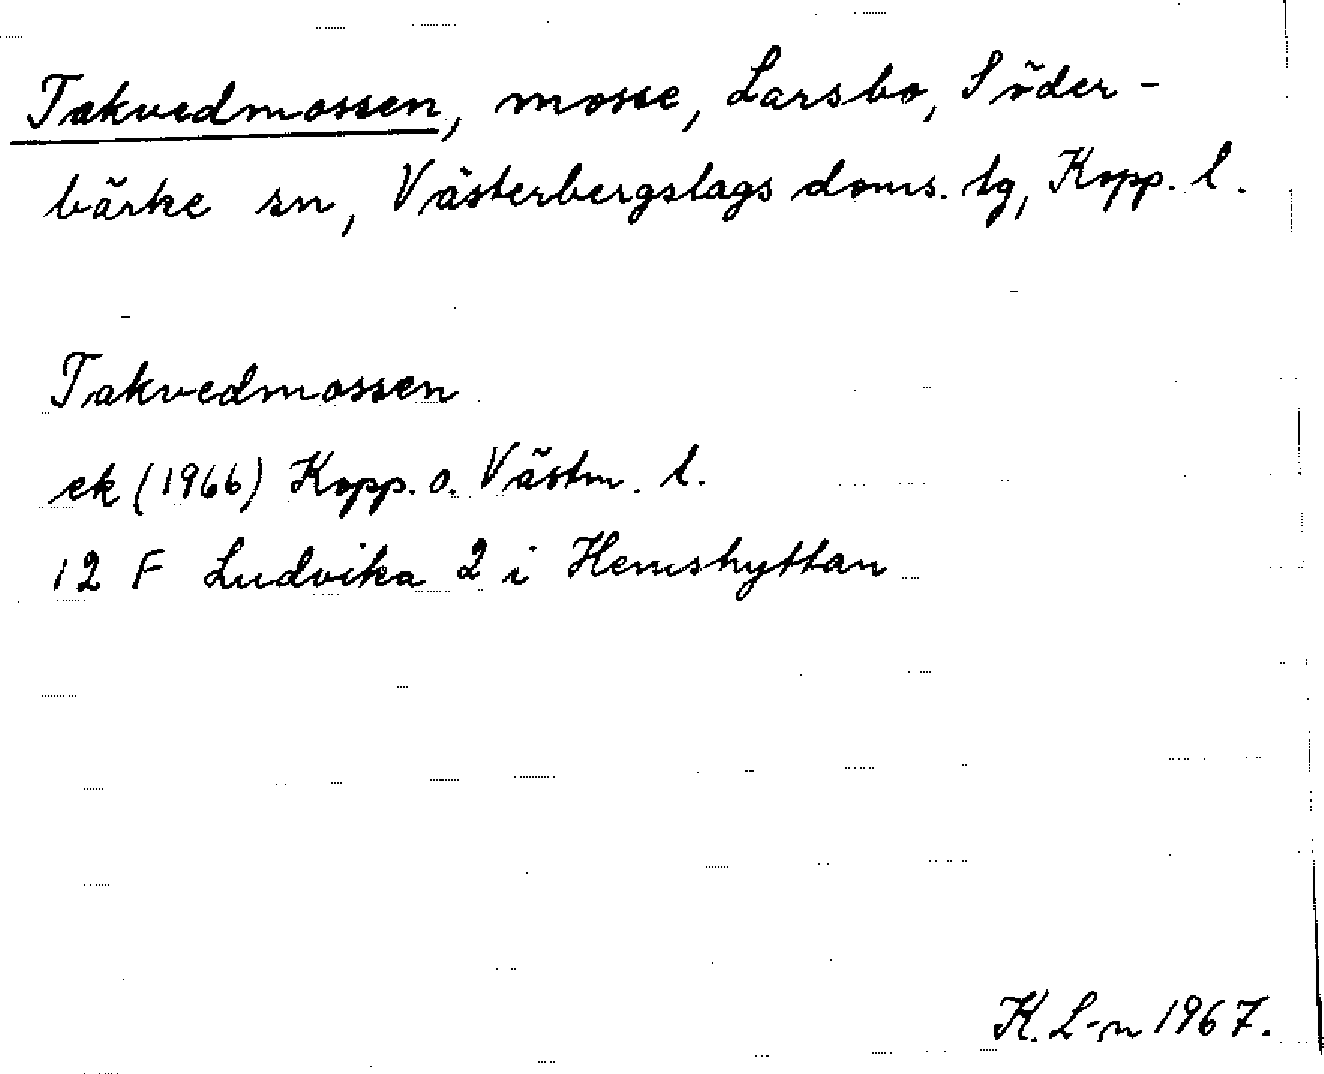 Takvedmossen, mosse, Larsbo, Söder-
bärke sn, Västerbergslags doms. tg, Kopp. l.
Takvedmossen
ek (1966) Kopp. o. Västm. l.
12 F Ludvika 2 i Hemshyttan
K. L-n 1967.